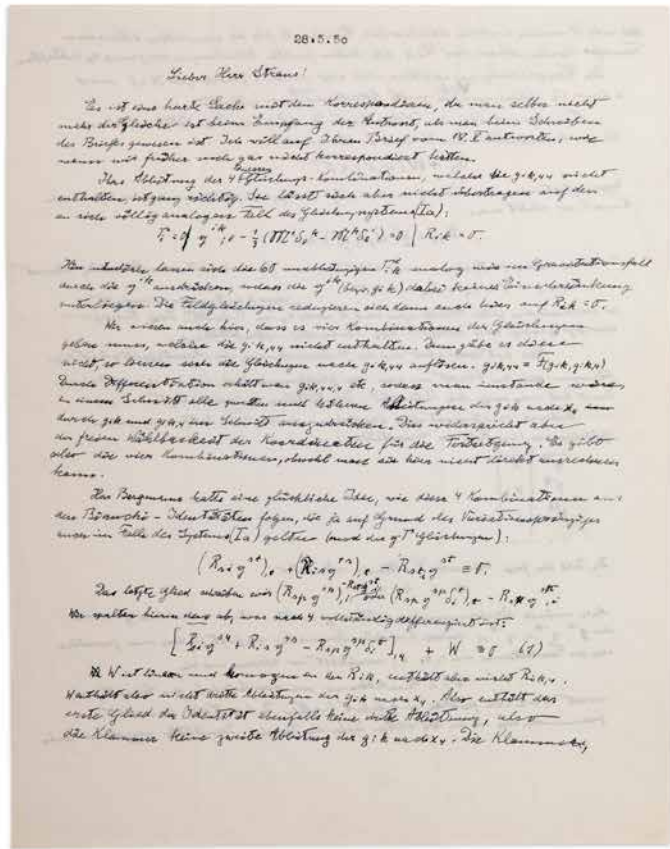 28.5.50
Lieber Herr Straus!
Es ist eine harte Sache mit dem Korrespondieren, da man selber nicht
mehr der Gleiche ist beim Empfang der Antwort, als man beim Schreiben
des Briefes gewesen ist. Ich will auf Ihren Brief vom antworten, wie
wenn wir früher noch gar nicht korrespondiert hätten.
Ihre Ableitung der 4 Gleichungs-Kombinationen, welche die gik,44 nicht
enthalten, ist ganz richtig. Sie lässt sich aber nicht übertragen auf den
an sich völlig analogen Fall des Gleichungssystems (Ia):
durch die g^ik ausdrücken, sodass die g^ik (bezw. gik) dabei keiner Einschränkung
unterliegen. Die Feldgleichungen reduzieren sich dann auch hier auf Rik = 0.
Wir wissen auch hier, dass es vier Kombinationen der Gleichungen
geben muss, welche die gik,44 nicht enthalten. Denn gäbe es diese
nicht, so liessen sich die Gleichungen nach gik,44 auflösen. gik,44 = F(gik, gik,4)
Durch Differentiation erhält man gik,44,4 etc, sodass man imstande wäre,
in einem Schnitt alle zweiten und höheren Ableitungen der gik nach x4
durch gik und gik,4 im Schnitt auszudrücken. Dies widerspricht aber
der freien Wählbarkeit der Koordinaten für die Fortsetzung. Es gibt
also die vier Kombinationen, obwohl man sie hier nicht direkt ausrechnen
kann.
Bergmann hatte eine glückliche Idee, wie diese 4 Kombinationen aus
den Bianchi-Identitäten folgen, die ja auf Grund des Variationsprinzipes
auch im Falle des Systems (Ia) gelten (und die Gleichungen):
Das letzte Glied schreiben wir
Wir spalten hierin ab, was nach 4 vollständig differenziert ist:
+ W ≡ 0 (1)
W ist linear und homogen in den Rik, enthält aber nicht Rik,4.
W enthält also nicht dritte Ableitungen der gik nach x4. Also enthält das
erste Glied der Identität ebenfalls keine dritte Ableitung, also
die Klammer keine zweite Ableitung der gik nach x4. Die